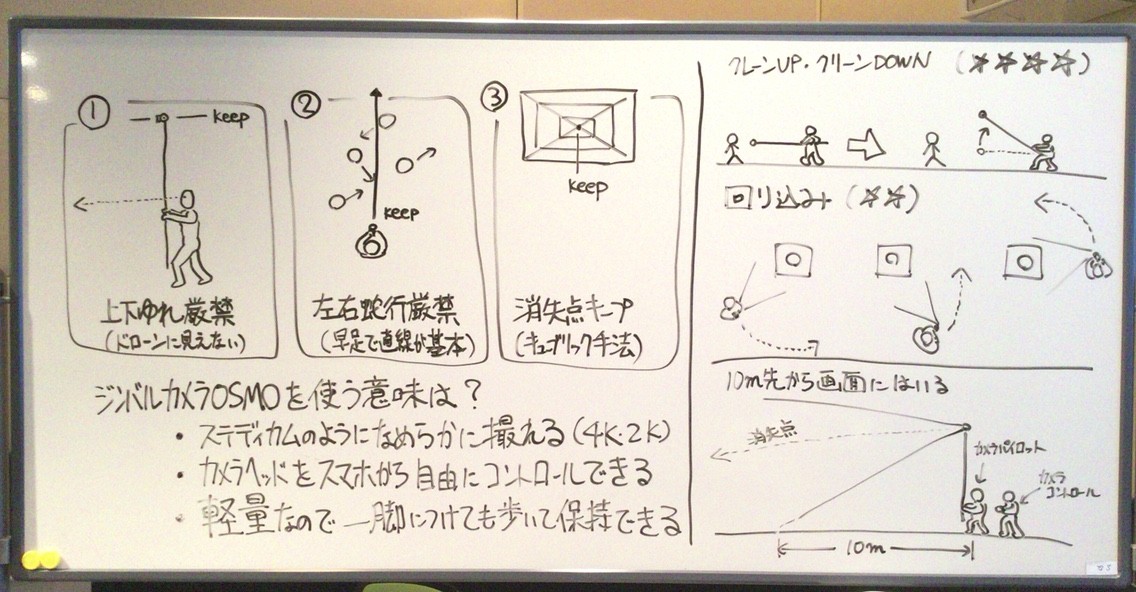 ①
keep
上下ゆれ厳禁
(ドローンに見えない)
②
keep
左右蛇行厳禁
(早足で直線が基本)
③
keep
消失点キープ
(キューブリック手法)
ジンバルカメラOSMOを使う意味は?
・ステディカムのようになめらかに撮れる(4K・2K)
・カメラヘッドをスマホから自由にコントロールできる
・軽量なので一脚につけても歩いて保持できる
クレーンUP・クレーンDOWN (☆☆☆☆)
回り込み (☆☆)
10m先から画面にはいる
消失点
カメラパイロット
カメラ
コントロール
10m